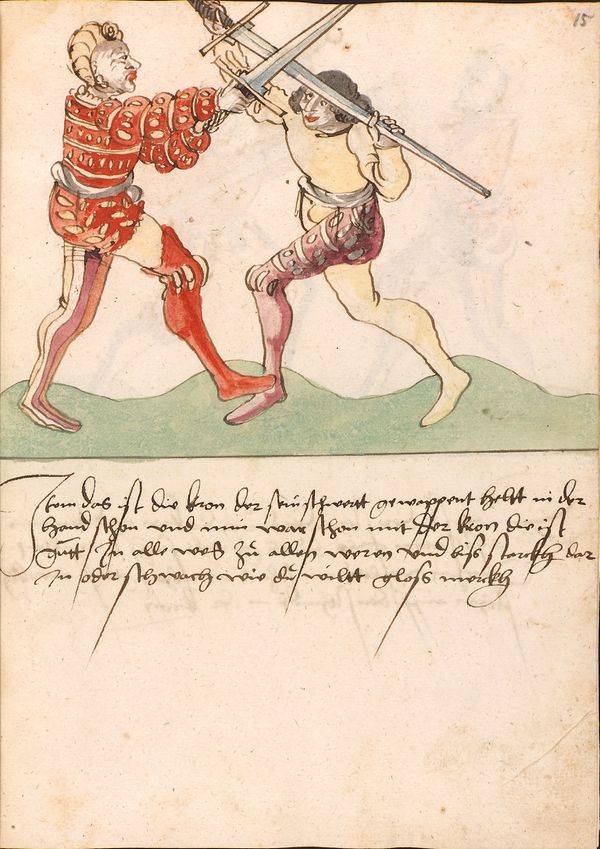 15
Item das ist die kron der sein schwertt gewappent heltt in der
hand schon und nim war schon mit der kron die ist
gutt In alle weß zu allen weren und biss starckh dar
In oder schwach wie du wiltt gloss merckh